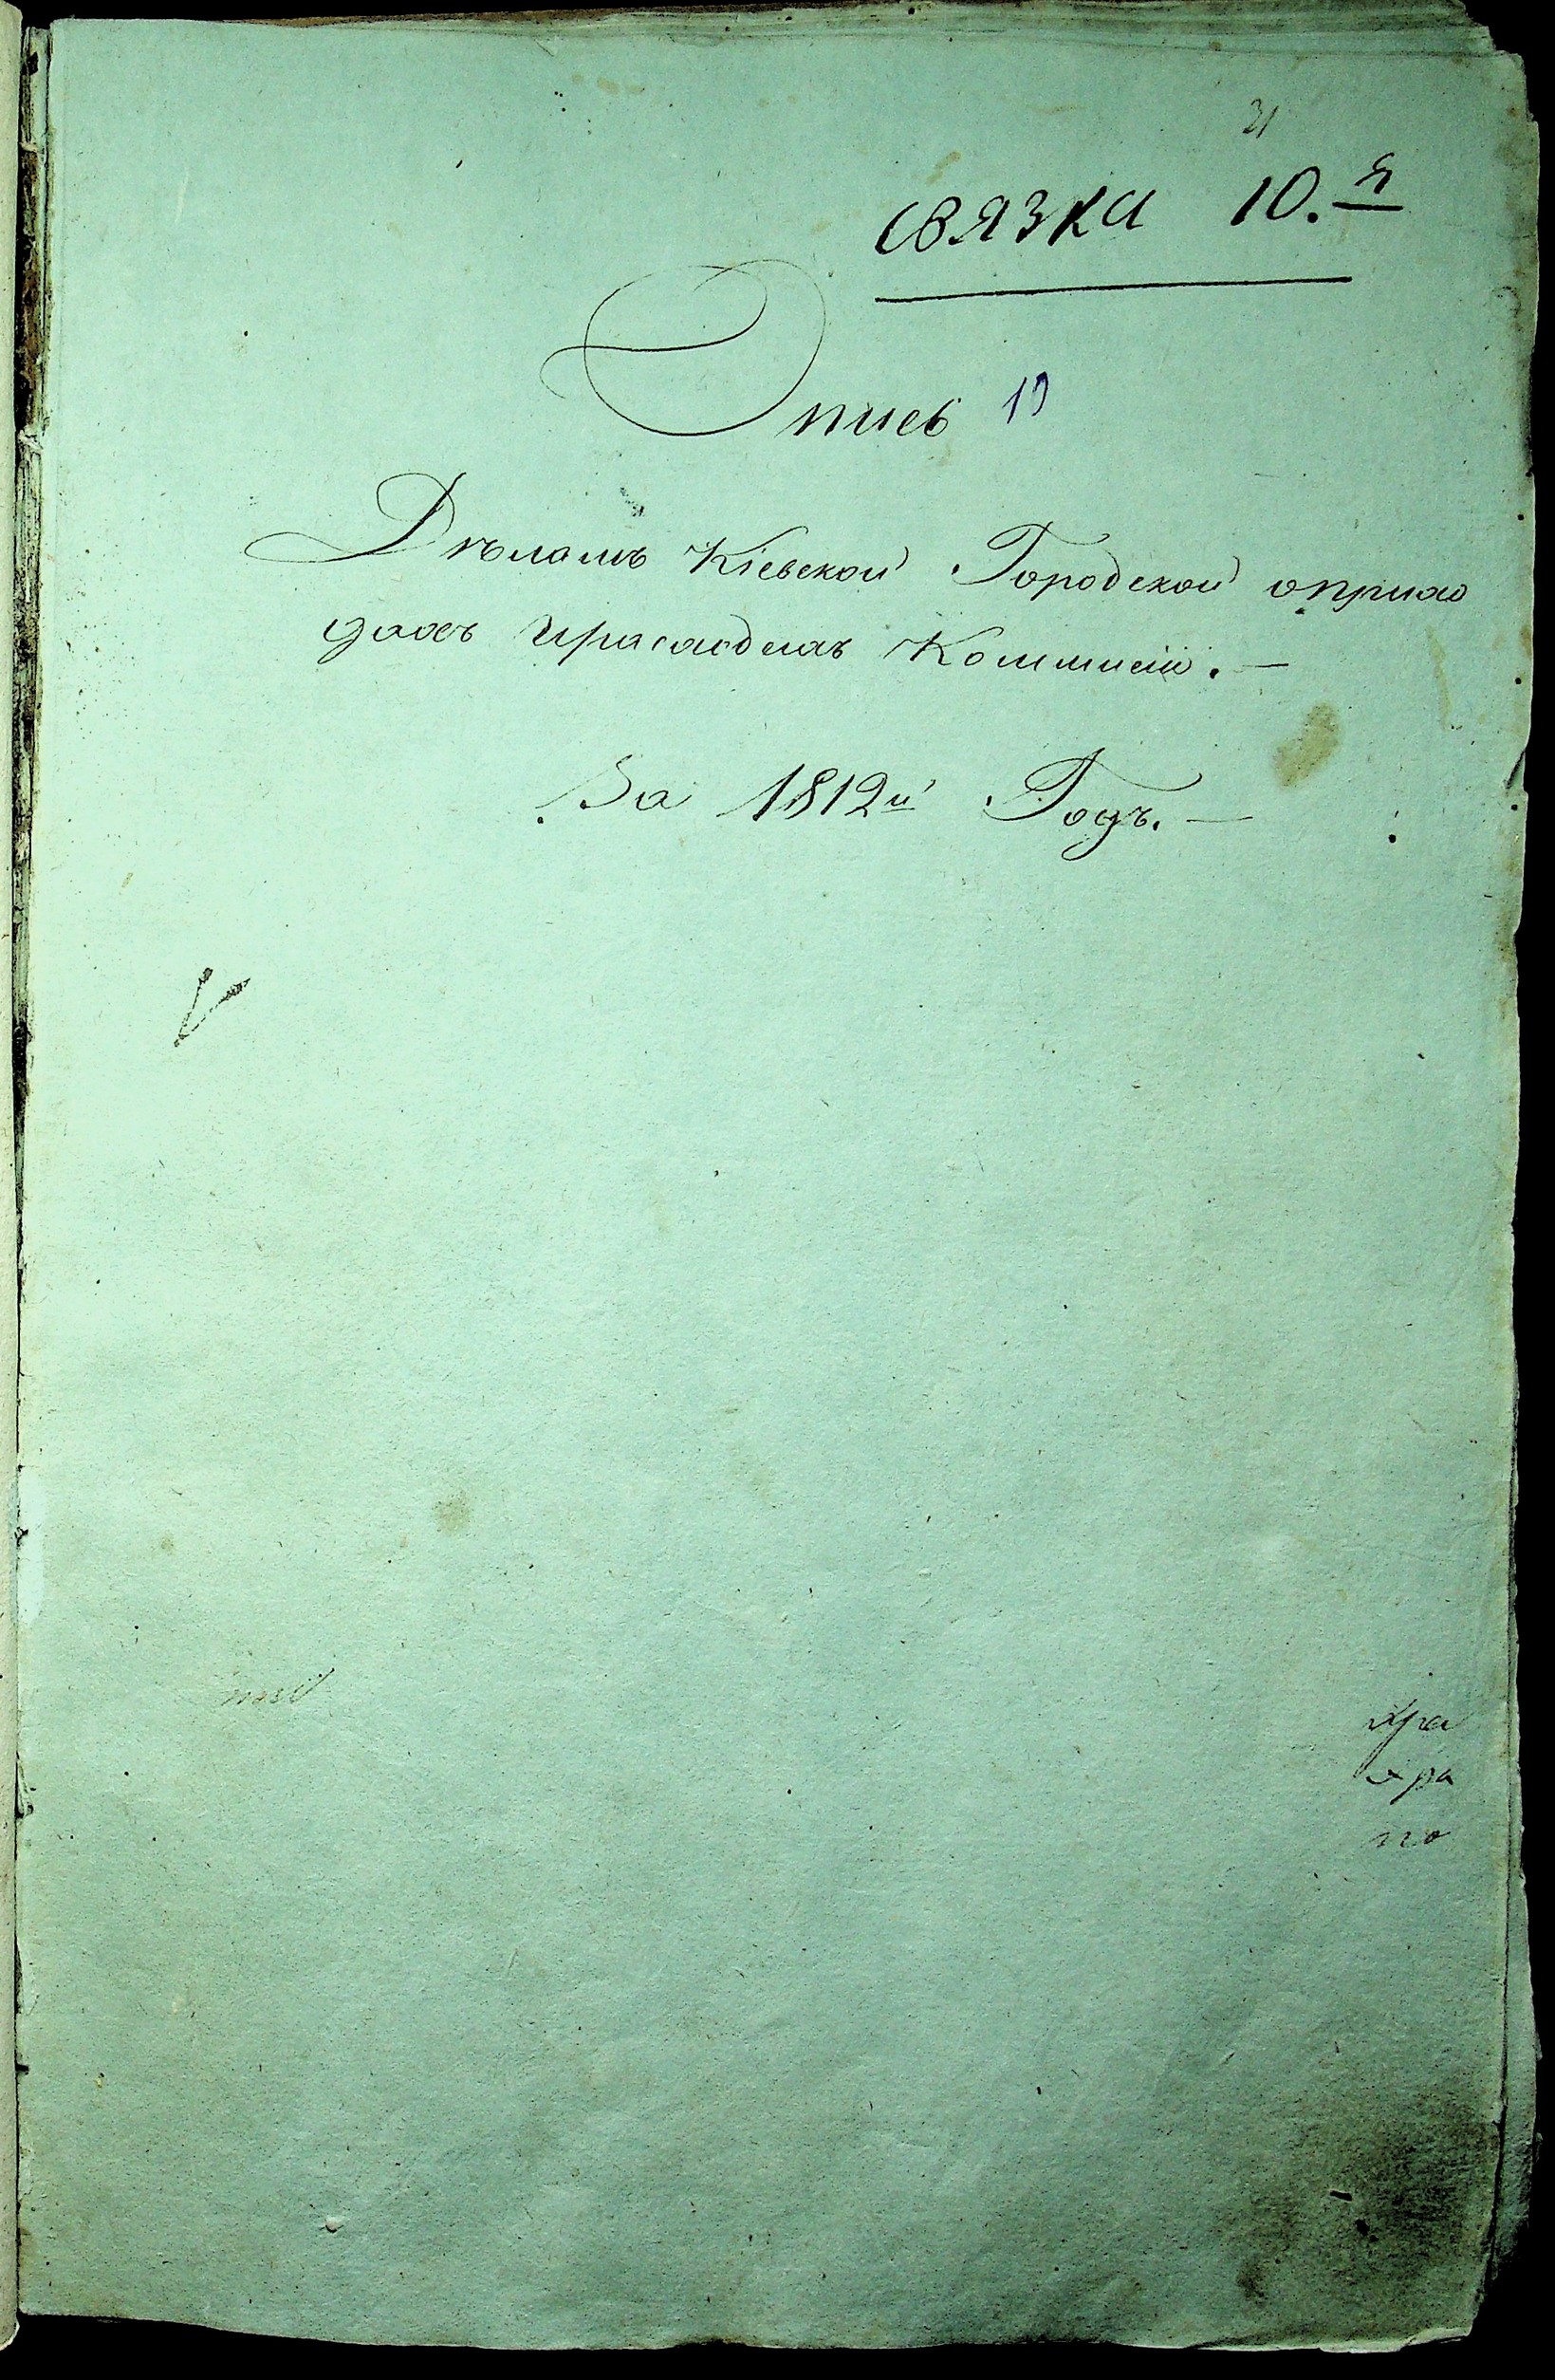 31
связка 10.я
Опись 19
Дѣламъ Кіевской Городской оприхо
дахъ ирасходахъ Коммисіи. —
За 1812й Годъ. —
хра
хра
по